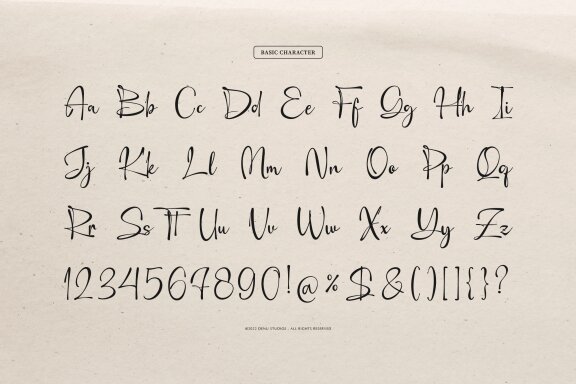 BASIC CHARACTER
Aa Bb Cc Dd Ee Ff Gg Hh Ii
Jj Kk Ll Mm Nn Oo Pp Qq
Rr Ss Tt Uu Vv Ww Xx Yy Zz
1234567890!@%$&()[]{}?
©2022 DENU STUDIOS . ALL RIGHTS RESERVED